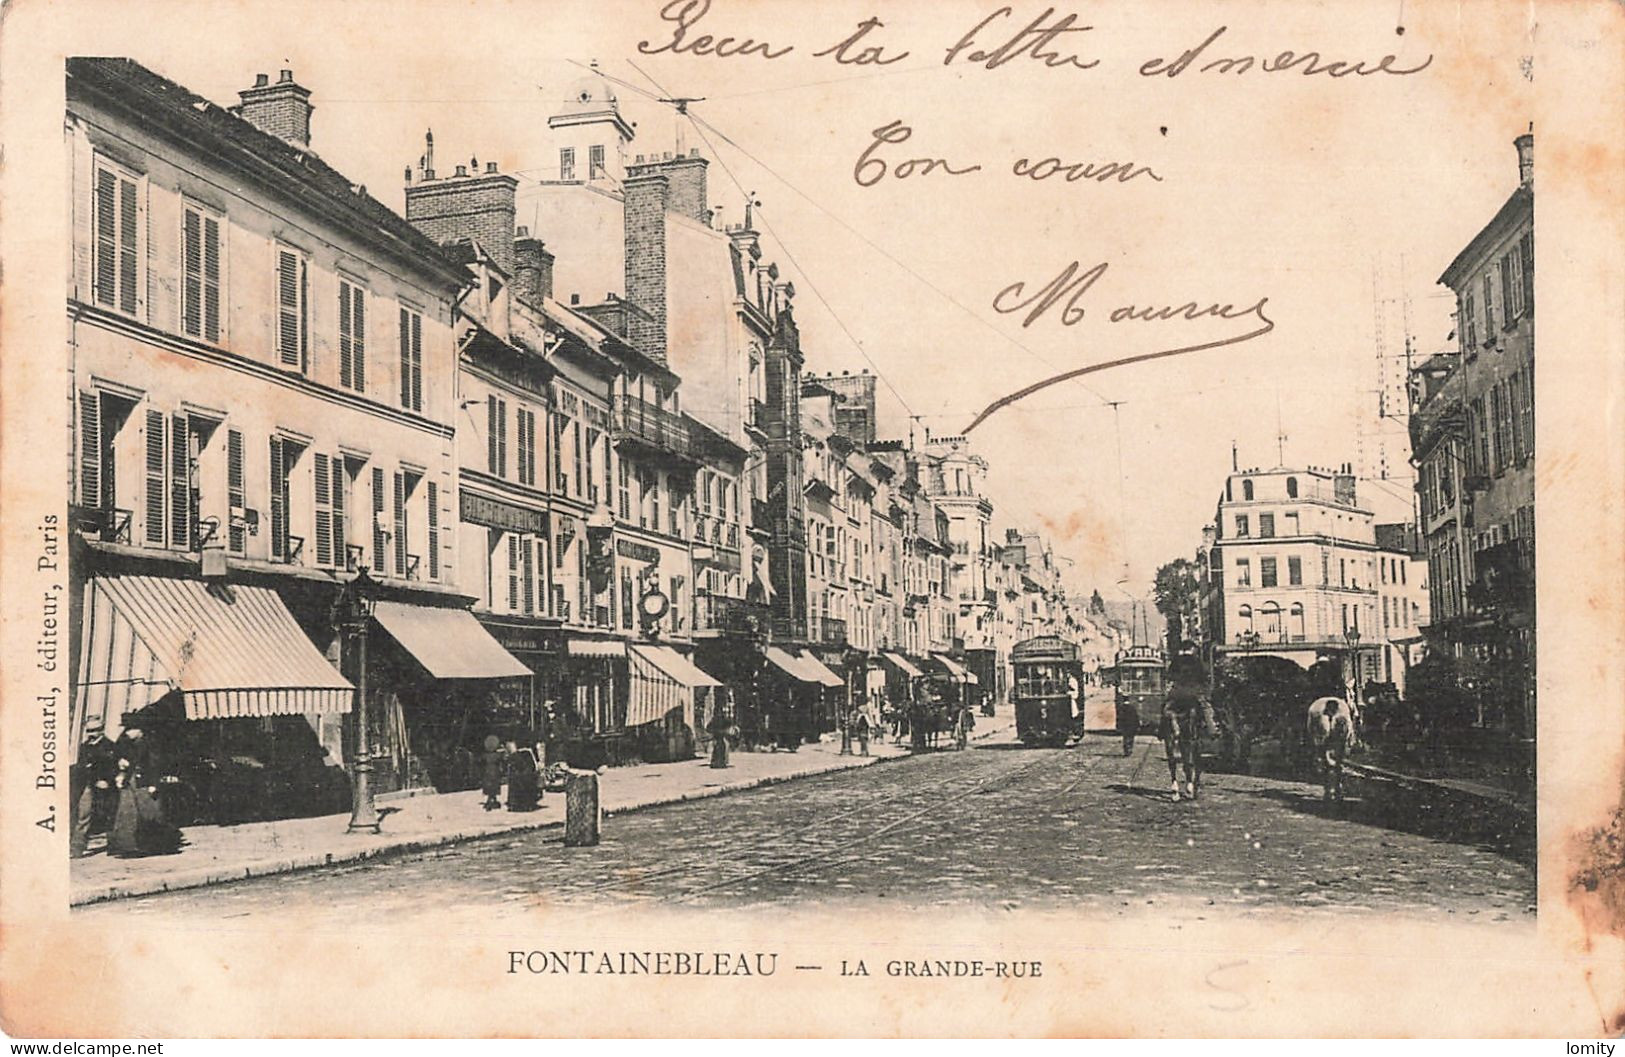 Reçu ta lettre et merci
Ton cousin
Maurice
A. Brossard, éditeur, Paris
5
FONTAINEBLEAU — LA GRANDE-RUE
S
Delcampe.net
lomity